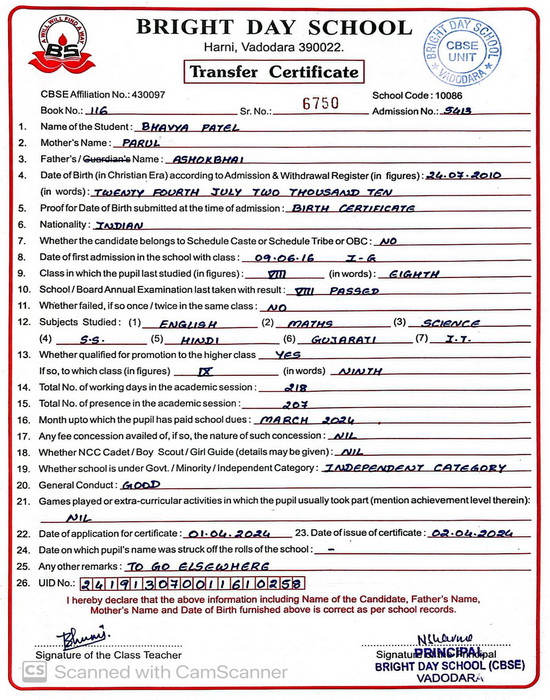 A WILL WILL FIND A WAY
BS
BRIGHT DAY SCHOOL
Harni, Vadodara 390022.
Transfer Certificate
BRIGHT DAY SCHOOL
CBSE
UNIT
* VADODARA *
CBSE Affiliation No.: 430097 School Code : 10086
Book No.: 116 Sr. No.: 6750 Admission No.: 5413
1. Name of the Student : BHAVYA PATEL
2. Mother's Name : PARUL
3. Father's / Guardian's Name : ASHOKBHAI
4. Date of Birth (in Christian Era) according to Admission & Withdrawal Register (in figures) : 24.07.2010
(in words) : TWENTY FOURTH JULY TWO THOUSAND TEN
5. Proof for Date of Birth submitted at the time of admission : BIRTH CERTIFICATE
6. Nationality : INDIAN
7. Whether the candidate belongs to Schedule Caste or Schedule Tribe or OBC : NO
8. Date of first admission in the school with class : 09.06.16 I-G
9. Class in which the pupil last studied (in figures) : VIII (in words) : EIGHTH
10. School / Board Annual Examination last taken with result : VIII PASSED
11. Whether failed, if so once / twice in the same class : NO
12. Subjects Studied : (1) ENGLISH (2) MATHS (3) SCIENCE
(4) S.S. (5) HINDI (6) GUJARATI (7) I.T.
13. Whether qualified for promotion to the higher class YES
If so, to which class (in figures) IX (in words) NINTH
14. Total No. of working days in the academic session : 218
15. Total No. of presence in the academic session : 207
16. Month upto which the pupil has paid school dues : MARCH 2024
17. Any fee concession availed of, if so, the nature of such concession : NIL
18. Whether NCC Cadet / Boy Scout / Girl Guide (details may be given) : NIL
19. Whether school is under Govt. / Minority / Independent Category : INDEPENDENT CATEGORY
20. General Conduct : GOOD
21. Games played or extra-curricular activities in which the pupil usually took part (mention achievement level therein):
NIL
22. Date of application for certificate : 01.04.2024 23. Date of issue of certificate : 02.04.2024
24. Date on which pupil's name was struck off the rolls of the school : -
25. Any other remarks : TO GO ELSEWHERE
26. UID No.: 241913070011610258
I hereby declare that the above information including Name of the Candidate, Father's Name,
Mother's Name and Date of Birth furnished above is correct as per school records.
Signature of the Class Teacher Signature of the Principal
PRINCIPAL
BRIGHT DAY SCHOOL (CBSE)
VADODARA
CS Scanned with CamScanner